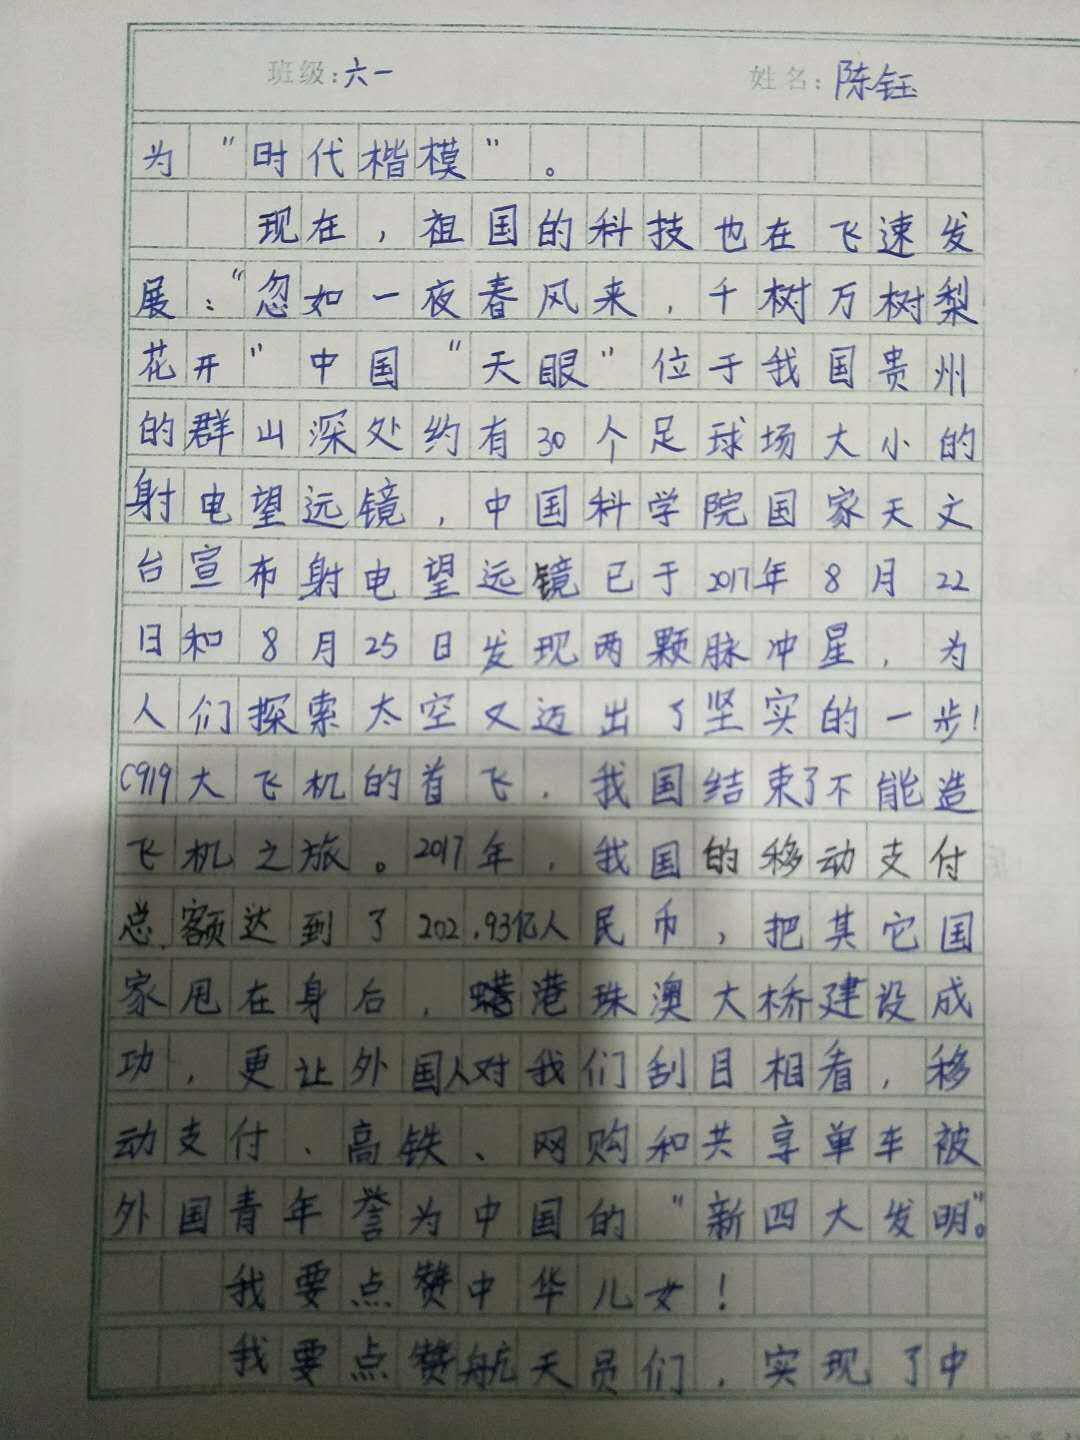 班级:六一 姓名:陈钰
为“时代楷模”。
现在，祖国的科技也在飞速发
展：“忽如一夜春风来，千树万树梨
花开”中国“天眼”位于我国贵州
的群山深处约有30个足球场大小的
射电望远镜，中国科学院国家天文
台宣布射电望远镜已于2017年8月22
日和8月25日发现两颗脉冲星，为
人们探索太空又迈出了坚实的一步!
C919大飞机的首飞，我国结束了不能造
飞机之旅。2017年，我国的移动支付
总额达到了202.93亿人民币，把其它国
家甩在身后，港珠澳大桥建设成
功，更让外国人对我们刮目相看，移
动支付、高铁、网购和共享单车被
外国青年誉为中国的“新四大发明”。
我要点赞中华儿女!
我要点赞航天员们，实现了中